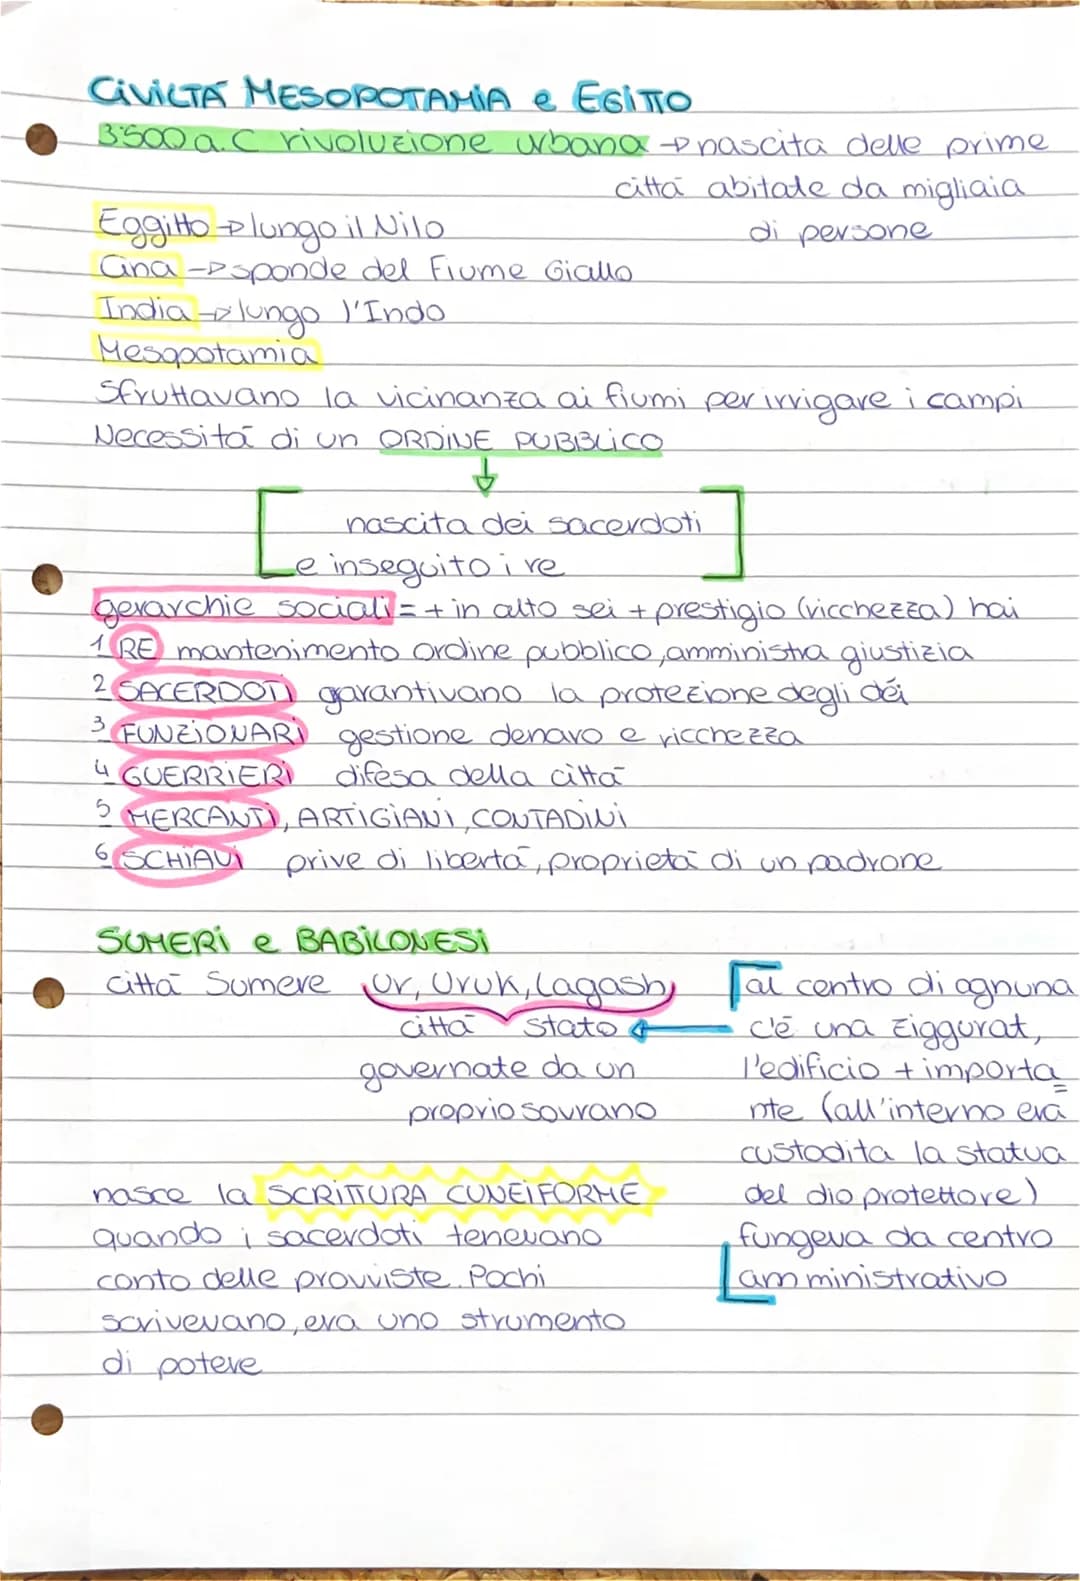 CIVILTÁ MESOPOTAMIA e EGITTO
3500 a.C rivoluzione urbana → nascita delle prime
città abitate da migliaia
di persone
Eggitto → lungo il Nilo
Cina → sponde del Fiume Giallo
India → lungo l'Indo
Mesopotamia
Sfruttavano la vicinanza ai fiumi per irrigare i campi
Necessità di un ORDINE PUBBLICO
↓
nascita dei sacerdoti
e inseguito i re
gerarchie sociali = + in alto sei + prestigio (ricchezza) hai
1 RE mantenimento ordine pubblico, amministra giustizia
2 SACERDOTI garantivano la protezione degli déi
3 FUNZIONARI gestione denaro e ricchezza
4 GUERRIERI difesa della città
5 MERCANTI, ARTIGIANI, CONTADINI
6 SCHIAVI prive di libertà, proprietà di un padrone
SUMERI e BABILONESI
città Sumere Ur, Uruk, Lagash
città stato ←
governate da un
proprio sovrano
al centro di ognuna
c'é una ziggurat,
l'edificio + importa
nte (all'interno era
custodita la statua
del dio protettore)
fungeva da centro
amministrativo
nasce la SCRITTURA CUNEIFORME
quando i sacerdoti tenevano
conto delle provviste. Pochi
scrivevano, era uno strumento
di potere